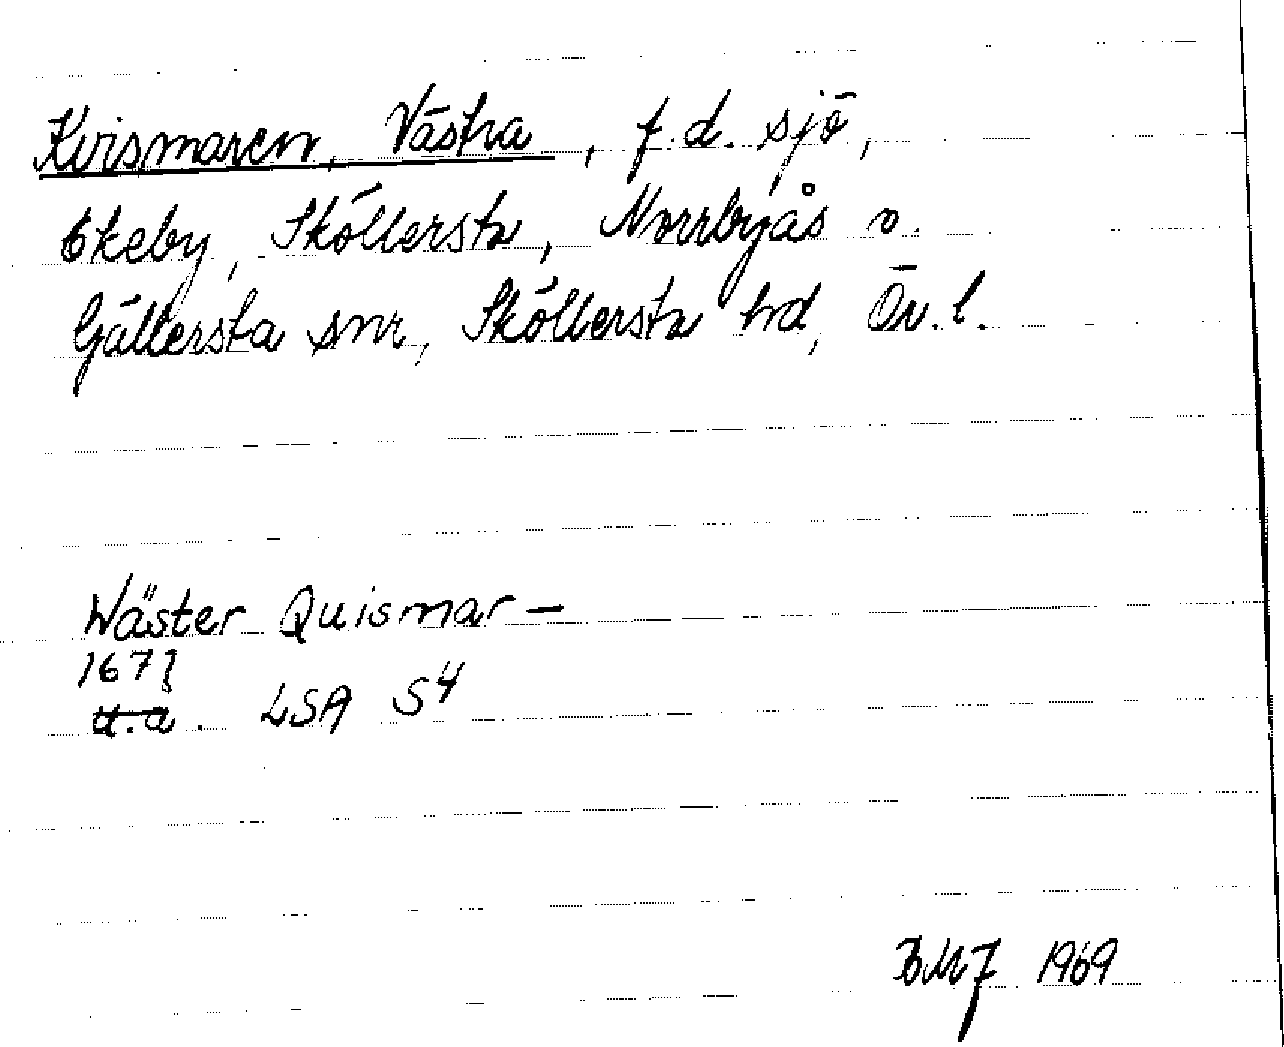 Kvismaren, Västra, f.d. sjö,
Ekeby, Sköllersta, Norrbyås o.
Gällersta snr, Sköllersta hd, Ör. l.
Wäster Quismar-
1671
u.a. LSA S4
BMJ 1969